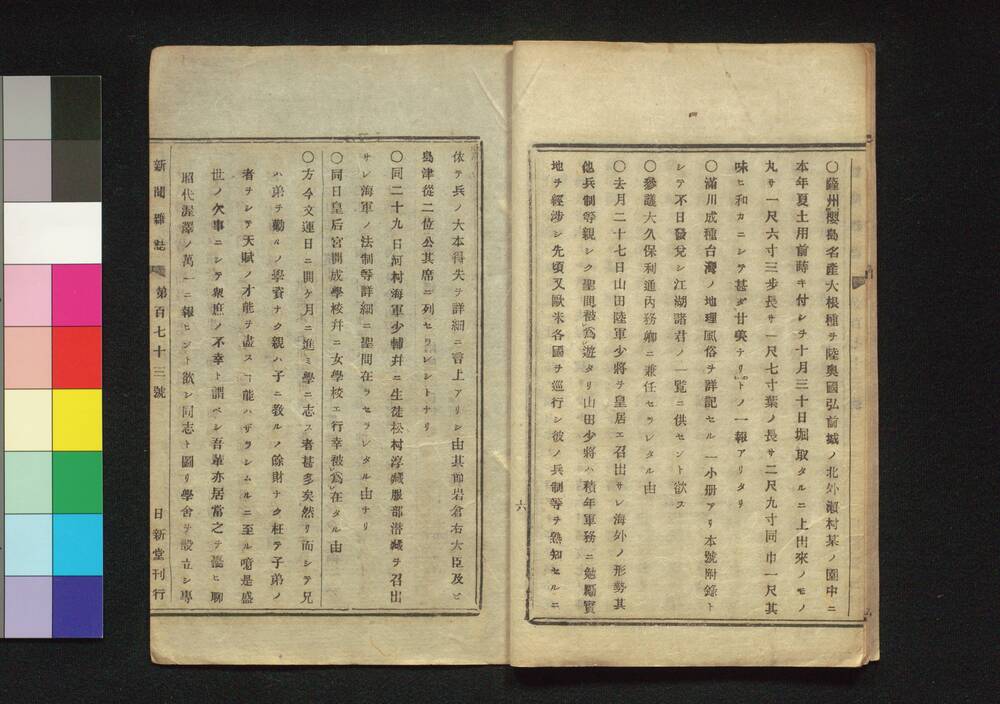 〇薩州櫻島名産大根種ヲ陸奥國弘前城ノ北外瀬村某ノ園中ニ
本年夏土用前蒔キ付シヲ十月三十日堀取タルニ上出來ノモノ
丸サ一尺六寸三歩長サ一尺七寸葉ノ長サ二尺九寸同巾一尺其
味ヒ和カニシテ甚ダ甘美ナリ｣トノ一報アリタリ
〇滿川成種台灣ノ地理風俗ヲ詳記セル一小册アリ本號附錄ト
シテ不日發兌シ江湖諸君ノ一覧ニ供セント欲ス
〇參議大久保利通内務卿ニ兼任セラレタル由
〇去月二十七日山田陸軍少將ヲ皇居エ召出サレ海外ノ形勢其
他兵制等親シク聖聞被｣爲｣遊タリ山田少將ハ積年軍務ニ勉勵實
地ヲ經渉シ先頃又歐米各國ヲ巡行シ彼ノ兵制等ヲ熟知セルニ
六
依テ兵ノ大本得失ヲ詳細ニ言上アリシ由其節岩倉右大臣及ヒ
島津從二位公其席ニ列セラレシトナリ
〇同二十九日河村海軍少輔幷ニ生徒松村淳藏服部潜藏ヲ召出
サレ海軍ノ法制等詳細ニ聖聞在ラセラレタル由ナリ
〇同日皇后宮開成學校幷ニ女學校エ行幸被｣爲｣在タル由
〇方今文運日ニ開ケ月ニ進ミ學ニ志ス者甚多矣然リ而シテ兄
ハ弟ヲ勸ルノ學資ナク親ハ子ニ教ルノ餘財ナク枉テ子弟ノ
者ヲシテ天賦ノ才能ヲ盡スヿ能ハザラシムルニ至ル噫是盛
世ノ欠事ニシテ衆庶ノ不幸ト謂ベシ吾輩亦居常之ヲ慨ヒ聊
昭代渥澤ノ萬一ニ報ヒント欲シ同志ト圖リ學舍ヲ設立シ專
新聞雜誌 第百七十三號 日新堂刊行